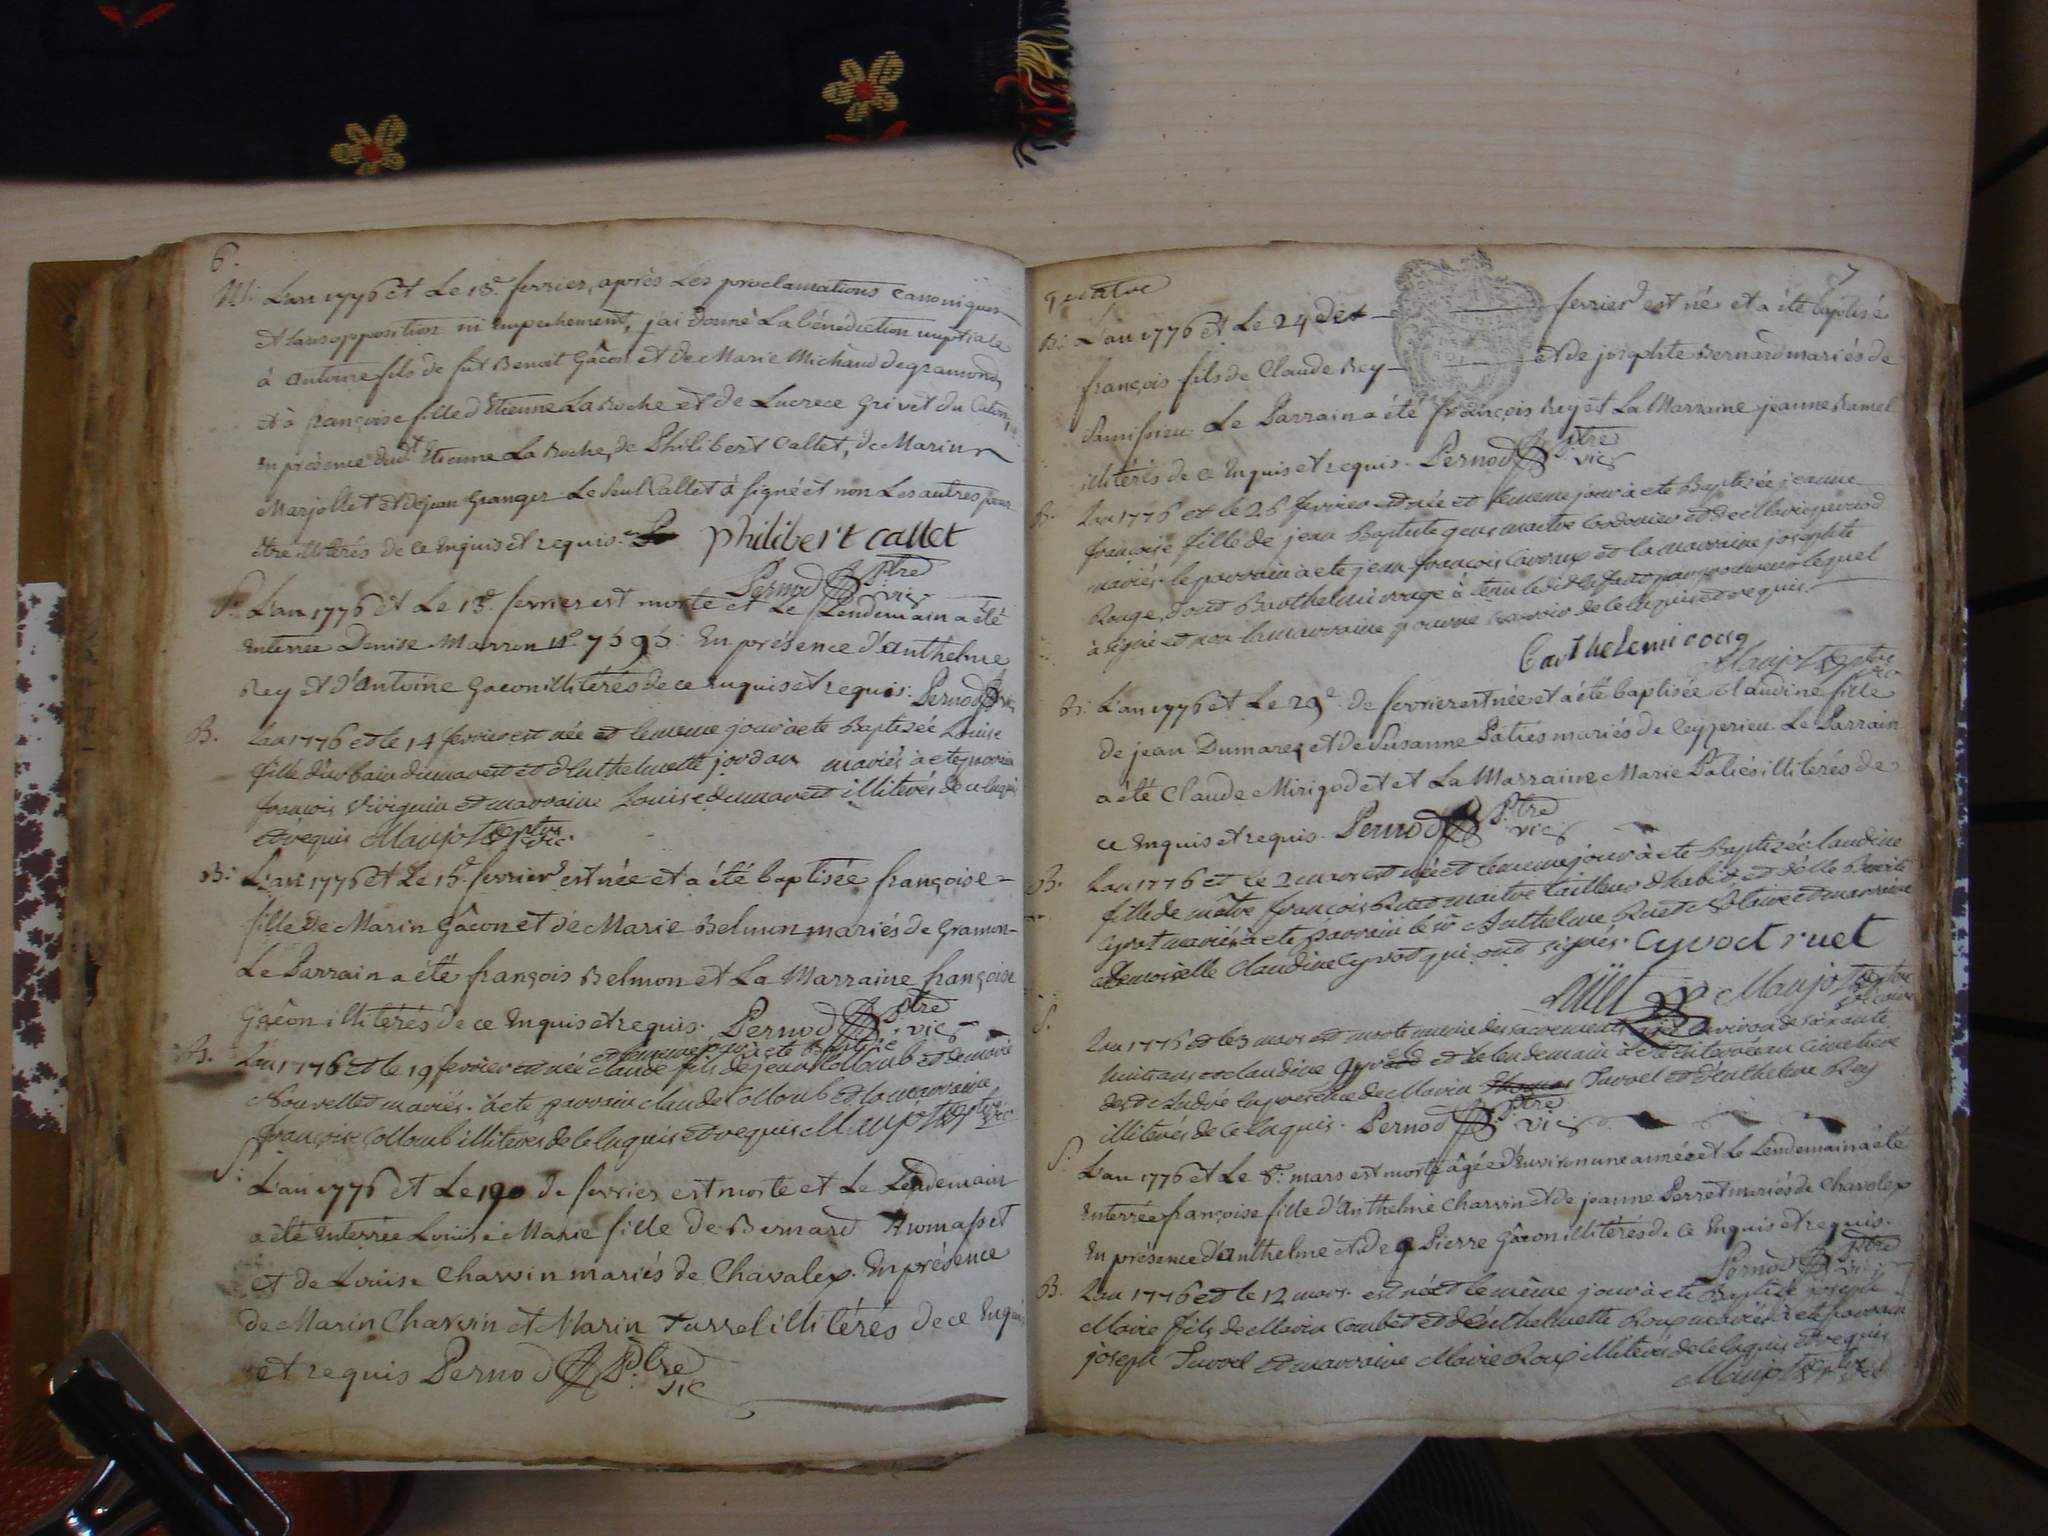 6.
M: L'an 1776 et Le 13.e fevrier, après Les proclamations canoniques
et sans opposition ni empechement, j'ai donné La bénédiction nuptiale
à antoine fils de fût Benoit Gâcon et de Marie Michaud de gramond,
et à françoise fille d'Etienne La Roche et de Lucrece Grivet du
En présence dud.t Etienne La Roche, de Philibert Callet, de Marin
Marjollet et de jean Granger Le seul Callet à signé et non Les autres pour
être illitérés de ce Enquis et requis.
philibert callet
Pernod Ptre vic
S: L'an 1776 et Le 13.e fevrier est morte et Le Lendemain a été
enterrée Denise Marron En présence d'anthelme
Rey et d'antoine Gacon illitérés de ce enquis et requis: Pernod vic
B. Lan 1776 et le 14 fevrier est née et lememe jour à ete Baptisée Louise
fille durbain dumarest et d'Anthelmette jordan mariés à ete parrain
françois et marraine Louise dumarest illiterés de ce Enquis
et requis Maujot ptre vic.
B: L'an 1776 et Le 15.e fevrier est née et a été baptisée françoise
fille de Marin Gâcon et de Marie Belmon mariés de Gramon
Le Parrain a été françois Belmon et La Marraine françoise
Gâcon illitérés de ce Enquis et requis. Pernod Ptre vic
et lememe jour à ete Baptisé
B. Lan 1776 et le 19 fevrier est née claude fils de jean Collomb et de marie
Nouvellet mariés. à ete parrain claude Collomb et la marraine
françoise Collomb illiterés de ce Enquis et requis Maujot ptre vic
S: L'an 1776 et Le de fevrier est morte et Le Lendemain
a été Enterrée Louise Marie fille de Bernard Thomasset
et de Louise Charvin mariés de Chavalex. En présence
de Marin Charvin et Marin Turrel illitérés de ce Enquis
et requis Pernod Ptre vic
7
quatre
B: L'an 1776 et Le 24 de fevrier est né et a été baptisé
françois fils de Claude Rey et de josephte Bernard mariés de
Le Parrain a été françois Rey et La Marraine jeanne Ramel
illitérés de ce Enquis et requis. Pernod Ptre vic
B. Lan 1776 et le 26 fevrier est née et lememe jour à ete Baptisée jeanne
françoise fille de jean Baptiste gens maitre Cordonier et de Marie pernod
mariés. le parrain a ete jean françois Carrux et la marraine josephte
Rouge, dont Barthelmi rouge à tenu ledit enfant par procureur lequel
à signé et non la marraine pour ne savoir de ce enquis et requis.
Barthelemi roug
Maujot ptre vic
B: L'an 1776 et Le 29.e de fevrier est née et a été baptisée Claudine fille
de jean Dumarex et de Susanne Patiés mariés de Ceyzerieu Le Parrain
a été Claude Mirigodet et La Marraine Marie Patiés illitérés de
ce Enquis et requis. Pernod Ptre vic
B. Lan 1776 et le 2 mars est née et lememe jour à ete Baptisée claudine
fille de maitre françois Ruet maitre tailleur d'habit, et de
Cyvoct mariés à ete parrain le sr Anthelme Ruet et marraine
demoiselle Claudine Cyvoct qui ont signés. Cyvoct ruet
Ruet Maujot ptre vicaire
S. Lan 1776 et le 3 mars est morte munie des sacrements agée environ de soixante
huit ans et le lendemain à ete enterrée au cimetiere
de St André en presence de Marin Turrel et d'Anthelme Rey
illiterés de ce Enquis. Pernod Ptre vic
S. L'an 1776 et Le 8.e mars est morte âgée d'Environ une année et le Lendemain a été
Enterrée françoise fille d'Anthelme Charvin et de jeanne Perret mariés de Chavalex
En présence d'anthelme et de Pierre Gâcon illitérés de ce Enquis et requis.
Pernod Ptre vic
B. Lan 1776 et le 12 mars est né et lemême jour à ete Baptisé joseph
Marie fils de Marin Combet et d'Anthelmette Roux mariés à ete parrain
joseph Turrel et marraine Marie Roux illiterés de ce Enquis et requis
Maujot ptre vic